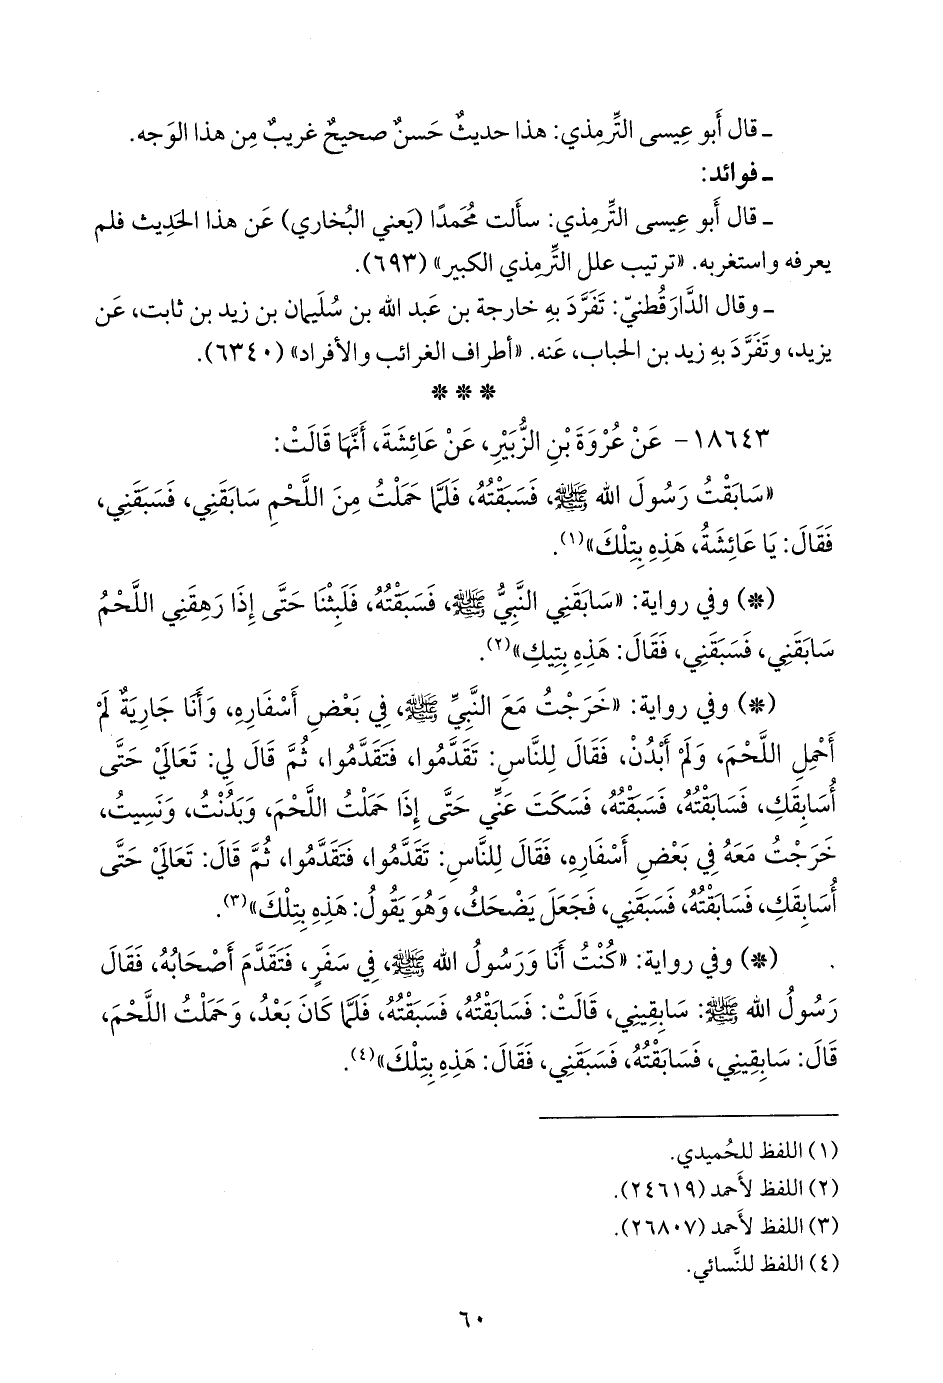 ـ قال أَبو عِيسى التِّرمِذي: هذا حديثٌ حَسنٌ صحيحٌ غريبٌ مِن هذا الوَجه.
ـ فوائد:
ـ قال أَبو عِيسى التِّرمِذي: سأَلت مُحَمدًا (يَعني البُخاري) عَن هذا الحَدِيث فلم
يعرفه واستغربه. «ترتيب علل التِّرمِذي الكبير» (٦٩٣).
ـ وقال الدَّارَقُطنيّ: تَفَرَّدَ بِهِ خارجة بن عَبد الله بن سُلَيمان بن زيد بن ثابت، عَن
يزيد، وتَفَرَّدَ بِهِ زيد بن الحباب، عَنه. «أطراف الغرائب والأفراد» (٦٣٤٠).
* * *
١٨٦٤٣- عَنْ عُرْوَةَ بْنِ الزُّبَيْرِ، عَنْ عَائِشَةَ، أَنَّهَا قَالَتْ:
«سَابَقْتُ رَسُولَ الله ﷺ، فَسَبَقْتُهُ، فَلَمَّا حَمَلْتُ مِنَ اللَّحْمِ سَابَقَنِي، فَسَبَقَنِي،
فَقَالَ: يَا عَائِشَةُ، هَذِهِ بِتِلْكَ»(١).
(*) وفي رواية: «سَابَقَنِي النَّبِيُّ ﷺ، فَسَبَقْتُهُ، فَلَبِثْنَا حَتَّى إِذَا رَهِقَنِي اللَّحْمُ
سَابَقَنِي، فَسَبَقَنِي، فَقَالَ: هَذِهِ بِتِيكِ»(٢).
(*) وفي رواية: «خَرَجْتُ مَعَ النَّبِيِّ ﷺ، فِي بَعْضِ أَسْفَارِهِ، وَأَنَا جَارِيَةٌ لَمْ
أَحْمِلِ اللَّحْمَ، وَلَمْ أَبْدُنْ، فَقَالَ لِلنَّاسِ: تَقَدَّمُوا، فَتَقَدَّمُوا، ثُمَّ قَالَ لِي: تَعَالَيْ حَتَّى
أُسَابِقَكِ، فَسَابَقْتُهُ، فَسَبَقْتُهُ، فَسَكَتَ عَنِّي حَتَّى إِذَا حَمَلْتُ اللَّحْمَ، وَبَدُنْتُ، وَنَسِيتُ،
خَرَجْتُ مَعَهُ فِي بَعْضِ أَسْفَارِهِ، فَقَالَ لِلنَّاسِ: تَقَدَّمُوا، فَتَقَدَّمُوا، ثُمَّ قَالَ: تَعَالَيْ حَتَّى
أُسَابِقَكِ، فَسَابَقْتُهُ، فَسَبَقَنِي، فَجَعَلَ يَضْحَكُ، وَهُوَ يَقُولُ: هَذِهِ بِتِلْكَ»(٣).
(*) وفي رواية: «كُنْتُ أَنَا وَرَسُولُ الله ﷺ، فِي سَفَرٍ، فَتَقَدَّمَ أَصْحَابُهُ، فَقَالَ
رَسُولُ الله ﷺ: سَابِقِينِي، قَالَتْ: فَسَابَقْتُهُ، فَسَبَقْتُهُ، فَلَمَّا كَانَ بَعْدُ، وَحَمَلْتُ اللَّحْمَ،
قَالَ: سَابِقِينِي، فَسَابَقْتُهُ، فَسَبَقَنِي، فَقَالَ: هَذِهِ بِتِلْكَ»(٤).
(١) اللفظ للحُميدي.
(٢) اللفظ لأَحمد (٢٤٦١٩).
(٣) اللفظ لأَحمد (٢٦٨٠٧).
(٤) اللفظ للنَّسائي.
٦٠